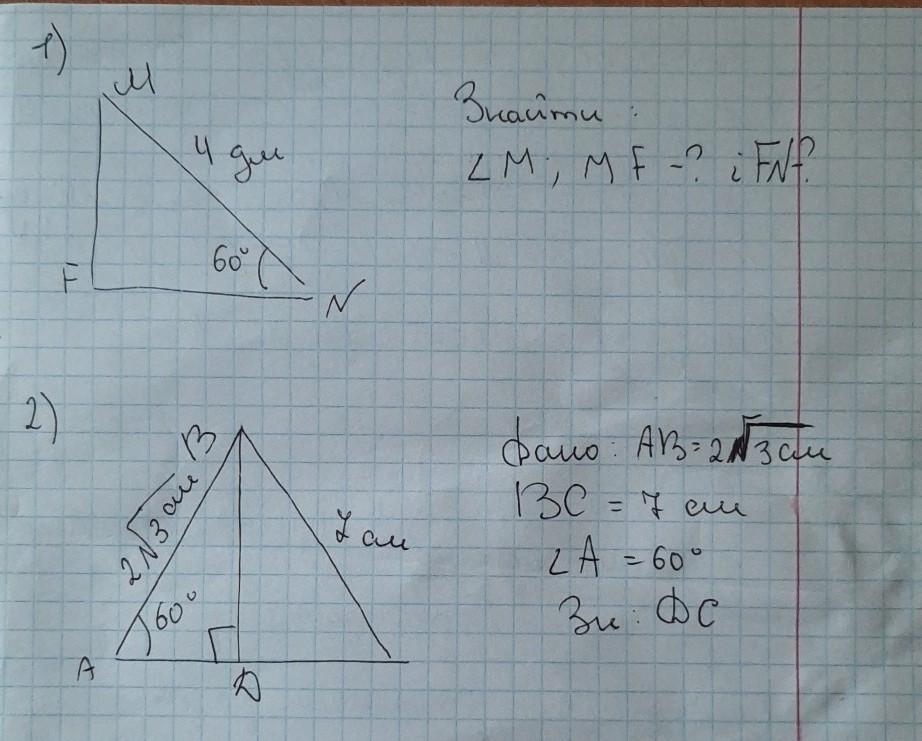 1)
M
4 дм
60°
F
N
Знайти :
∠M; MF -? і FN-?
2)
B
2√3 см
7 см
60°
A
D
Дано: AB = 2√3 см
BC = 7 см
∠A = 60°
Зн: DC